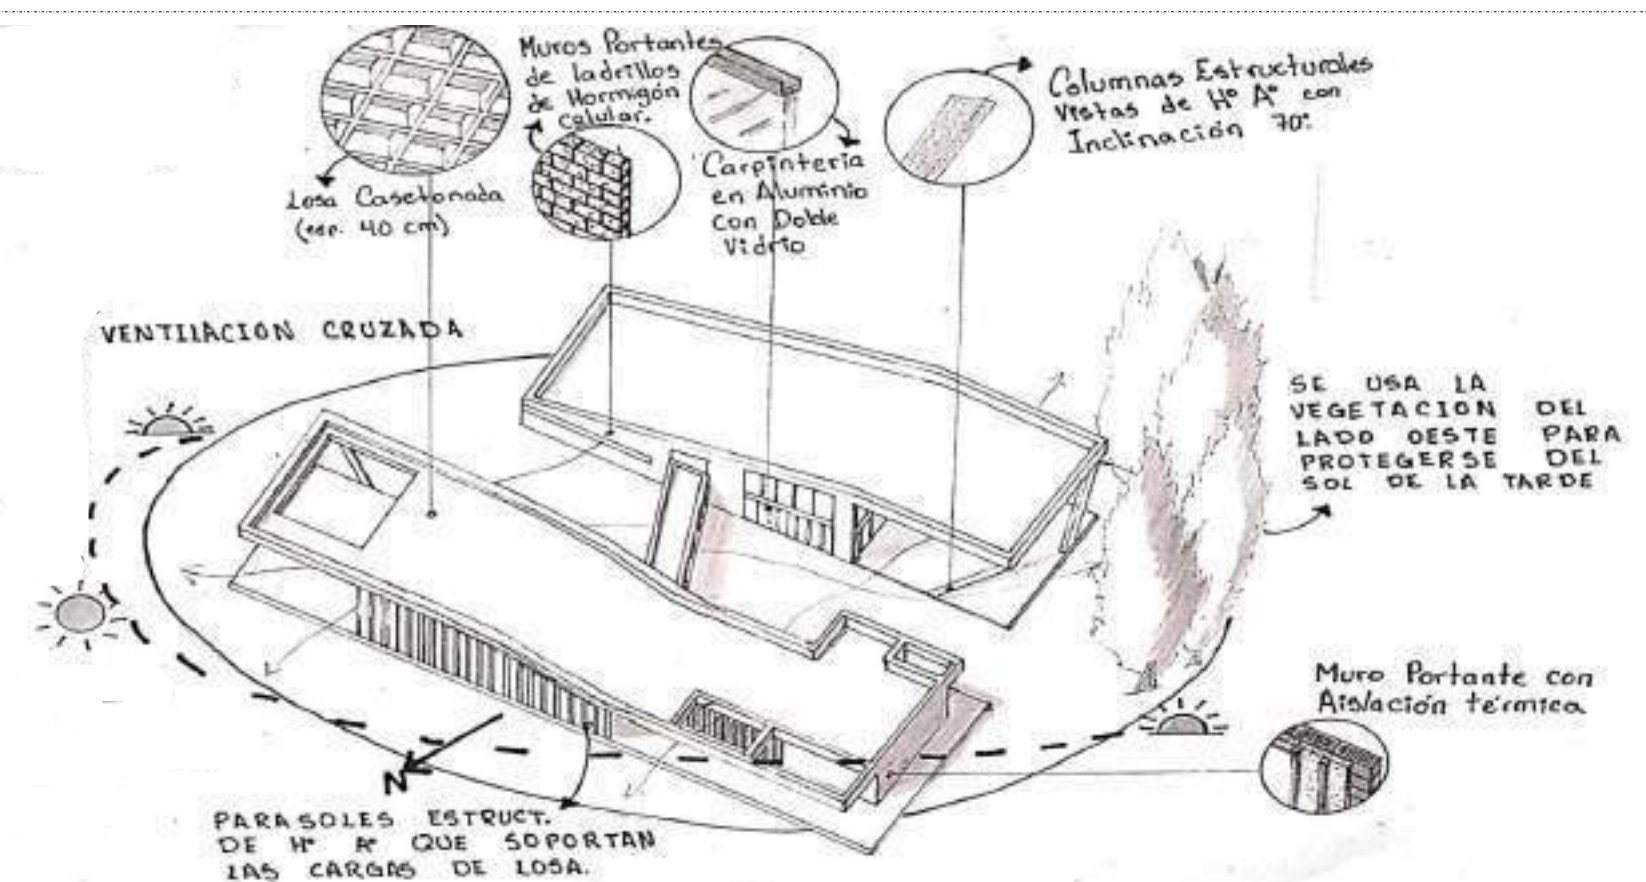 Losa Casetonada
(esp. 40 cm)
Muros Portantes
de ladrillos
de Hormigón
Celular.
Carpintería
en Aluminio
Con Doble
Vidrio
Columnas Estructurales
Vistas de Hº Aº con
Inclinación 70º
VENTILACION CRUZADA
SE USA LA
VEGETACION DEL
LADO OESTE PARA
PROTEGERSE DEL
SOL DE LA TARDE
Muro Portante con
Aislación térmica
N
PARASOLES ESTRUCT.
DE Hº Aº QUE SOPORTAN
LAS CARGAS DE LOSA.